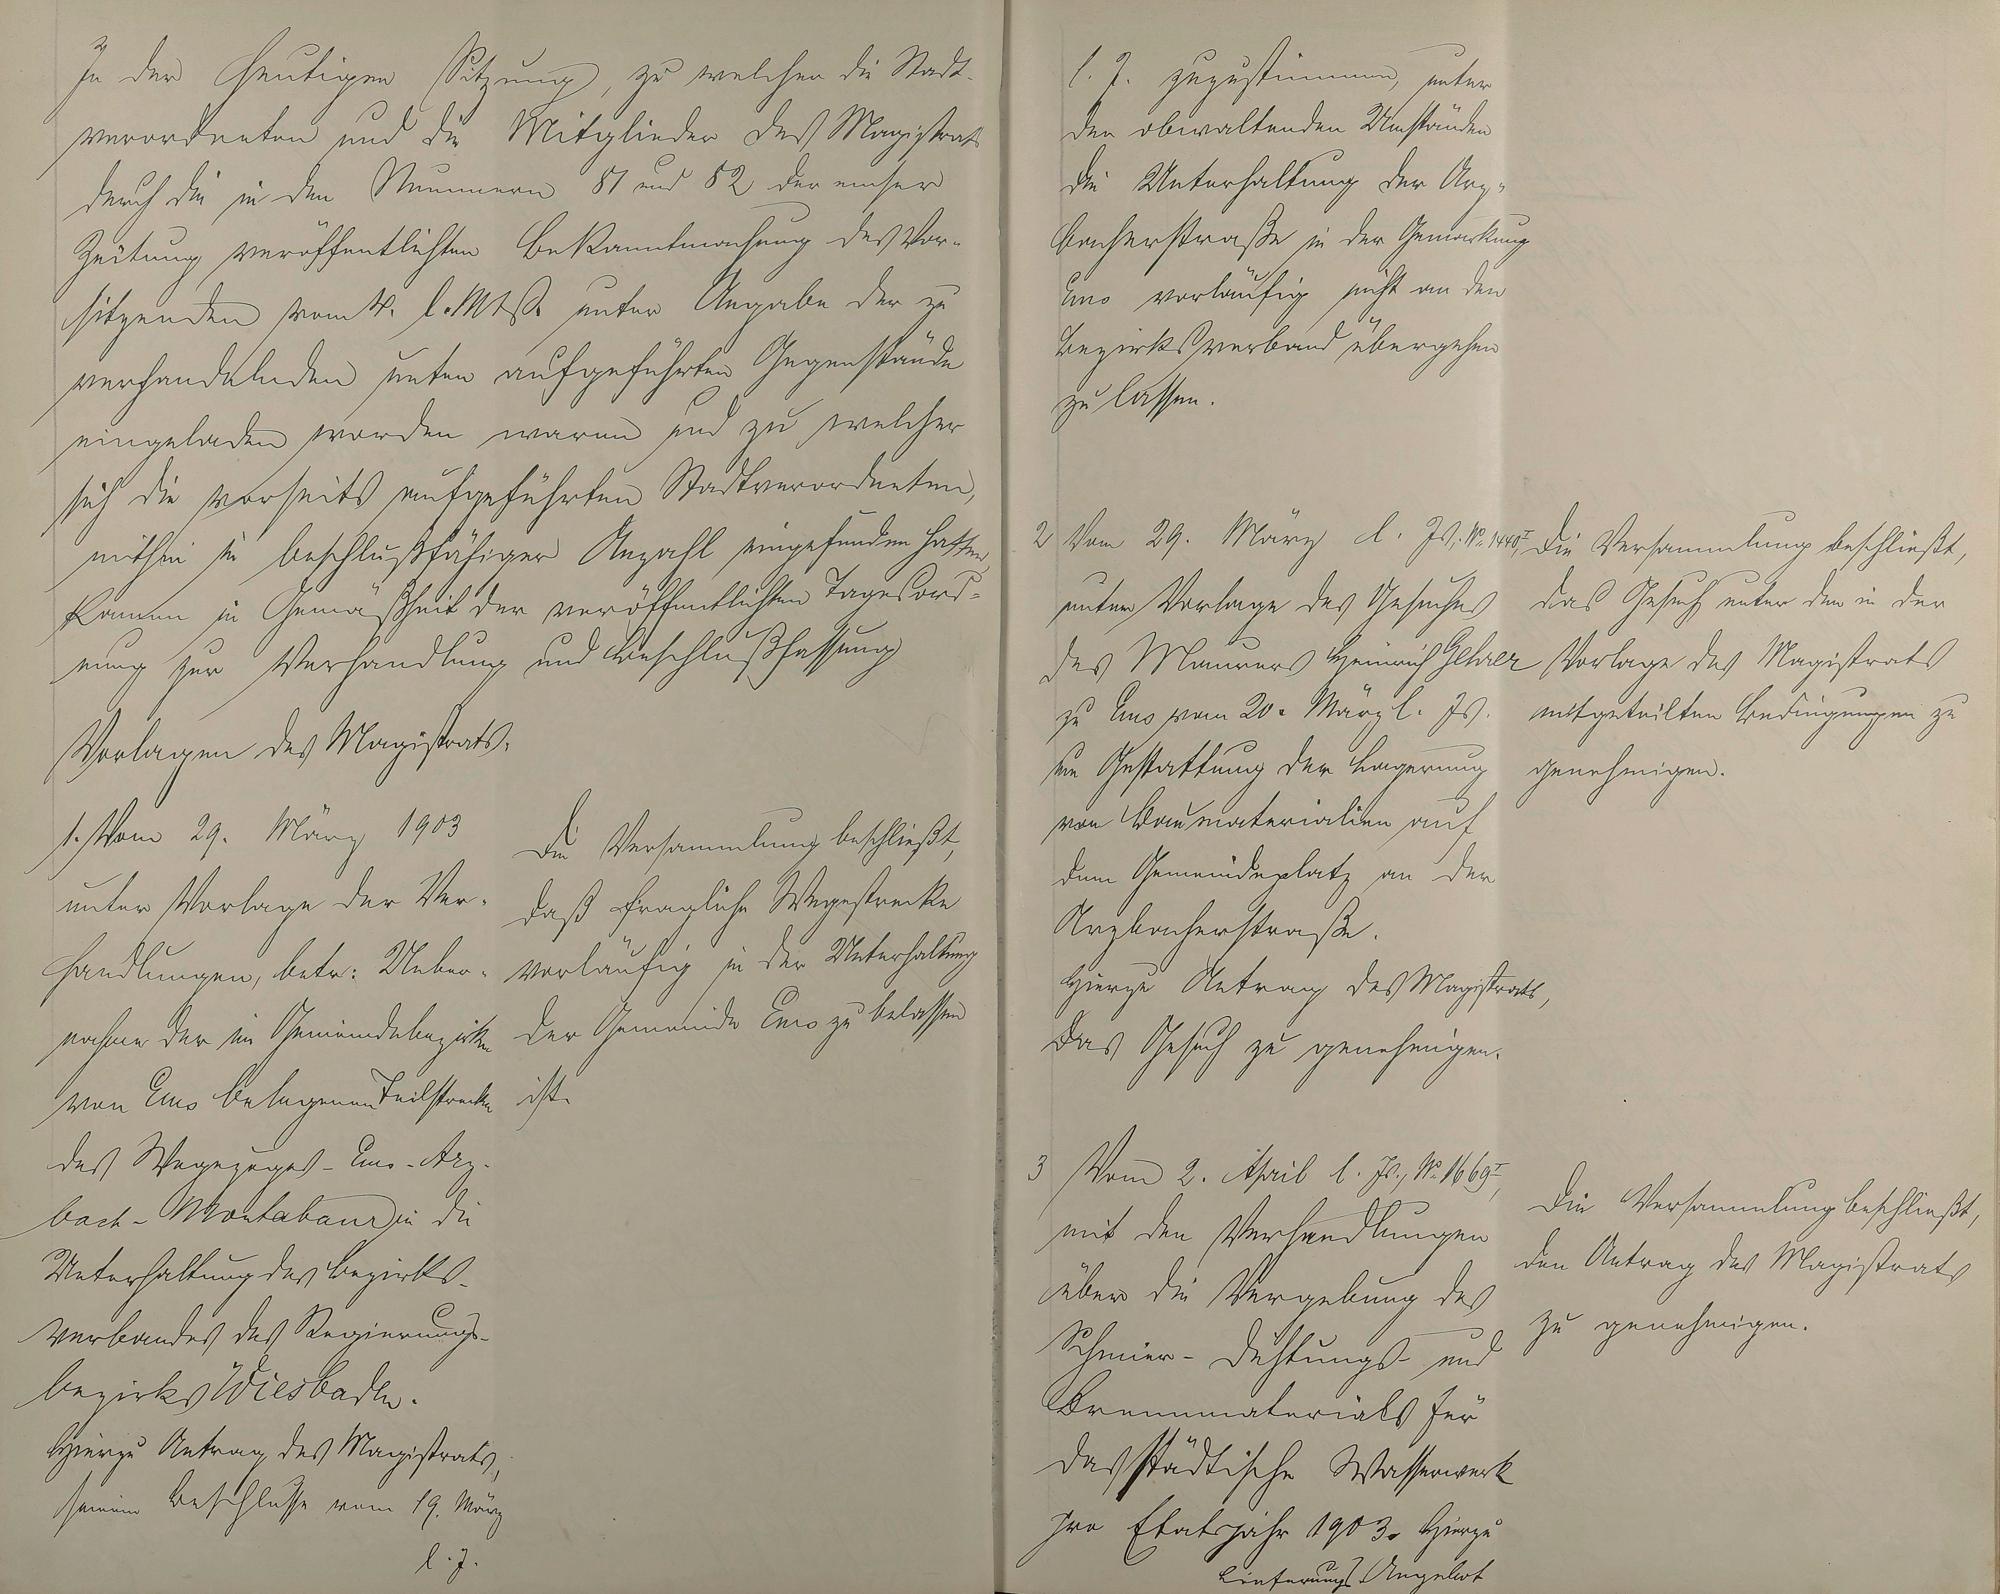 In der heutigen Sitzung, zu welcher die Stadt-
verordneten und die Mitglieder des Magistrats
durch die in den Nummern 81 und 82 der emser
Zeitung veröffentlichten Bekanntmachung des Vor-
sitzenden vom 4. l. Mts. unter Angabe der zu
verhandelnden unten aufgeführten Gegenstände
eingeladen worden waren und zu welcher
sich die vorseits aufgeführten Stadtverordneten,
mithin in beschlußfähiger Anzahl eingefunden hatten,
kamen in Gemäßheit der veröffentlichten Tagesord-
nung zur Verhandlung und Beschlußfassung
Vorlagen des Magistrats.
1. Vom 29. März 1903
unter Vorlage der Ver-
handlungen, betr: Ueber-
nahme der im Gemeindebezirke
von Ems belegenen Teilstrecke
des Wegezuges - Ems - Arz-
bach - Montabaur in die
Unterhaltung des Bezirks-
verbandes des Regierungs-
bezirks Wiesbaden.
Hierzu Antrag des Magistrats,
seinem Beschlusse vom 19. März
l. J.
Die Versammlung beschließt,
daß fragliche Wegestrecke
vorläufig in der Unterhaltung
der Gemeinde Ems zu belassen
ist.
l. J. zuzustimmen, unter
den obwaltenden Umständen
die Unterhaltung der Arz-
bacherstraße in der Gemarkung
Ems vorläufig nicht an den
Bezirksverband übergehen
zu lassen.
2 Vom 29. März l. Js., No. 1440 I
unter Vorlage des Gesuches
des Maurers Heinrich Gehrer
zu Ems vom 20. März l. Js.
um Gestattung der Lagerung
von Baumaterialien auf
dem Gemeindeplatz an der
Arzbacherstraße.
Hierzu Antrag des Magistrats,
das Gesuch zu genehmigen.
Die Versammlung beschließt,
das Gesuch unter den in der
Vorlage des Magistrats
mitgeteilten Bedingungen zu
genehmigen.
3 Vom 2. April l. Js., No. 1669 I,
mit den Verhandlungen
über die Vergebung des
Schmier- Dichtungs- und
Brennmaterials für
das städtische Wasserwerk
pro Etatsjahr 1903. Hierzu
Lieferungs-Angebot
Die Versammlung beschließt,
den Antrag des Magistrats
zu genehmigen.